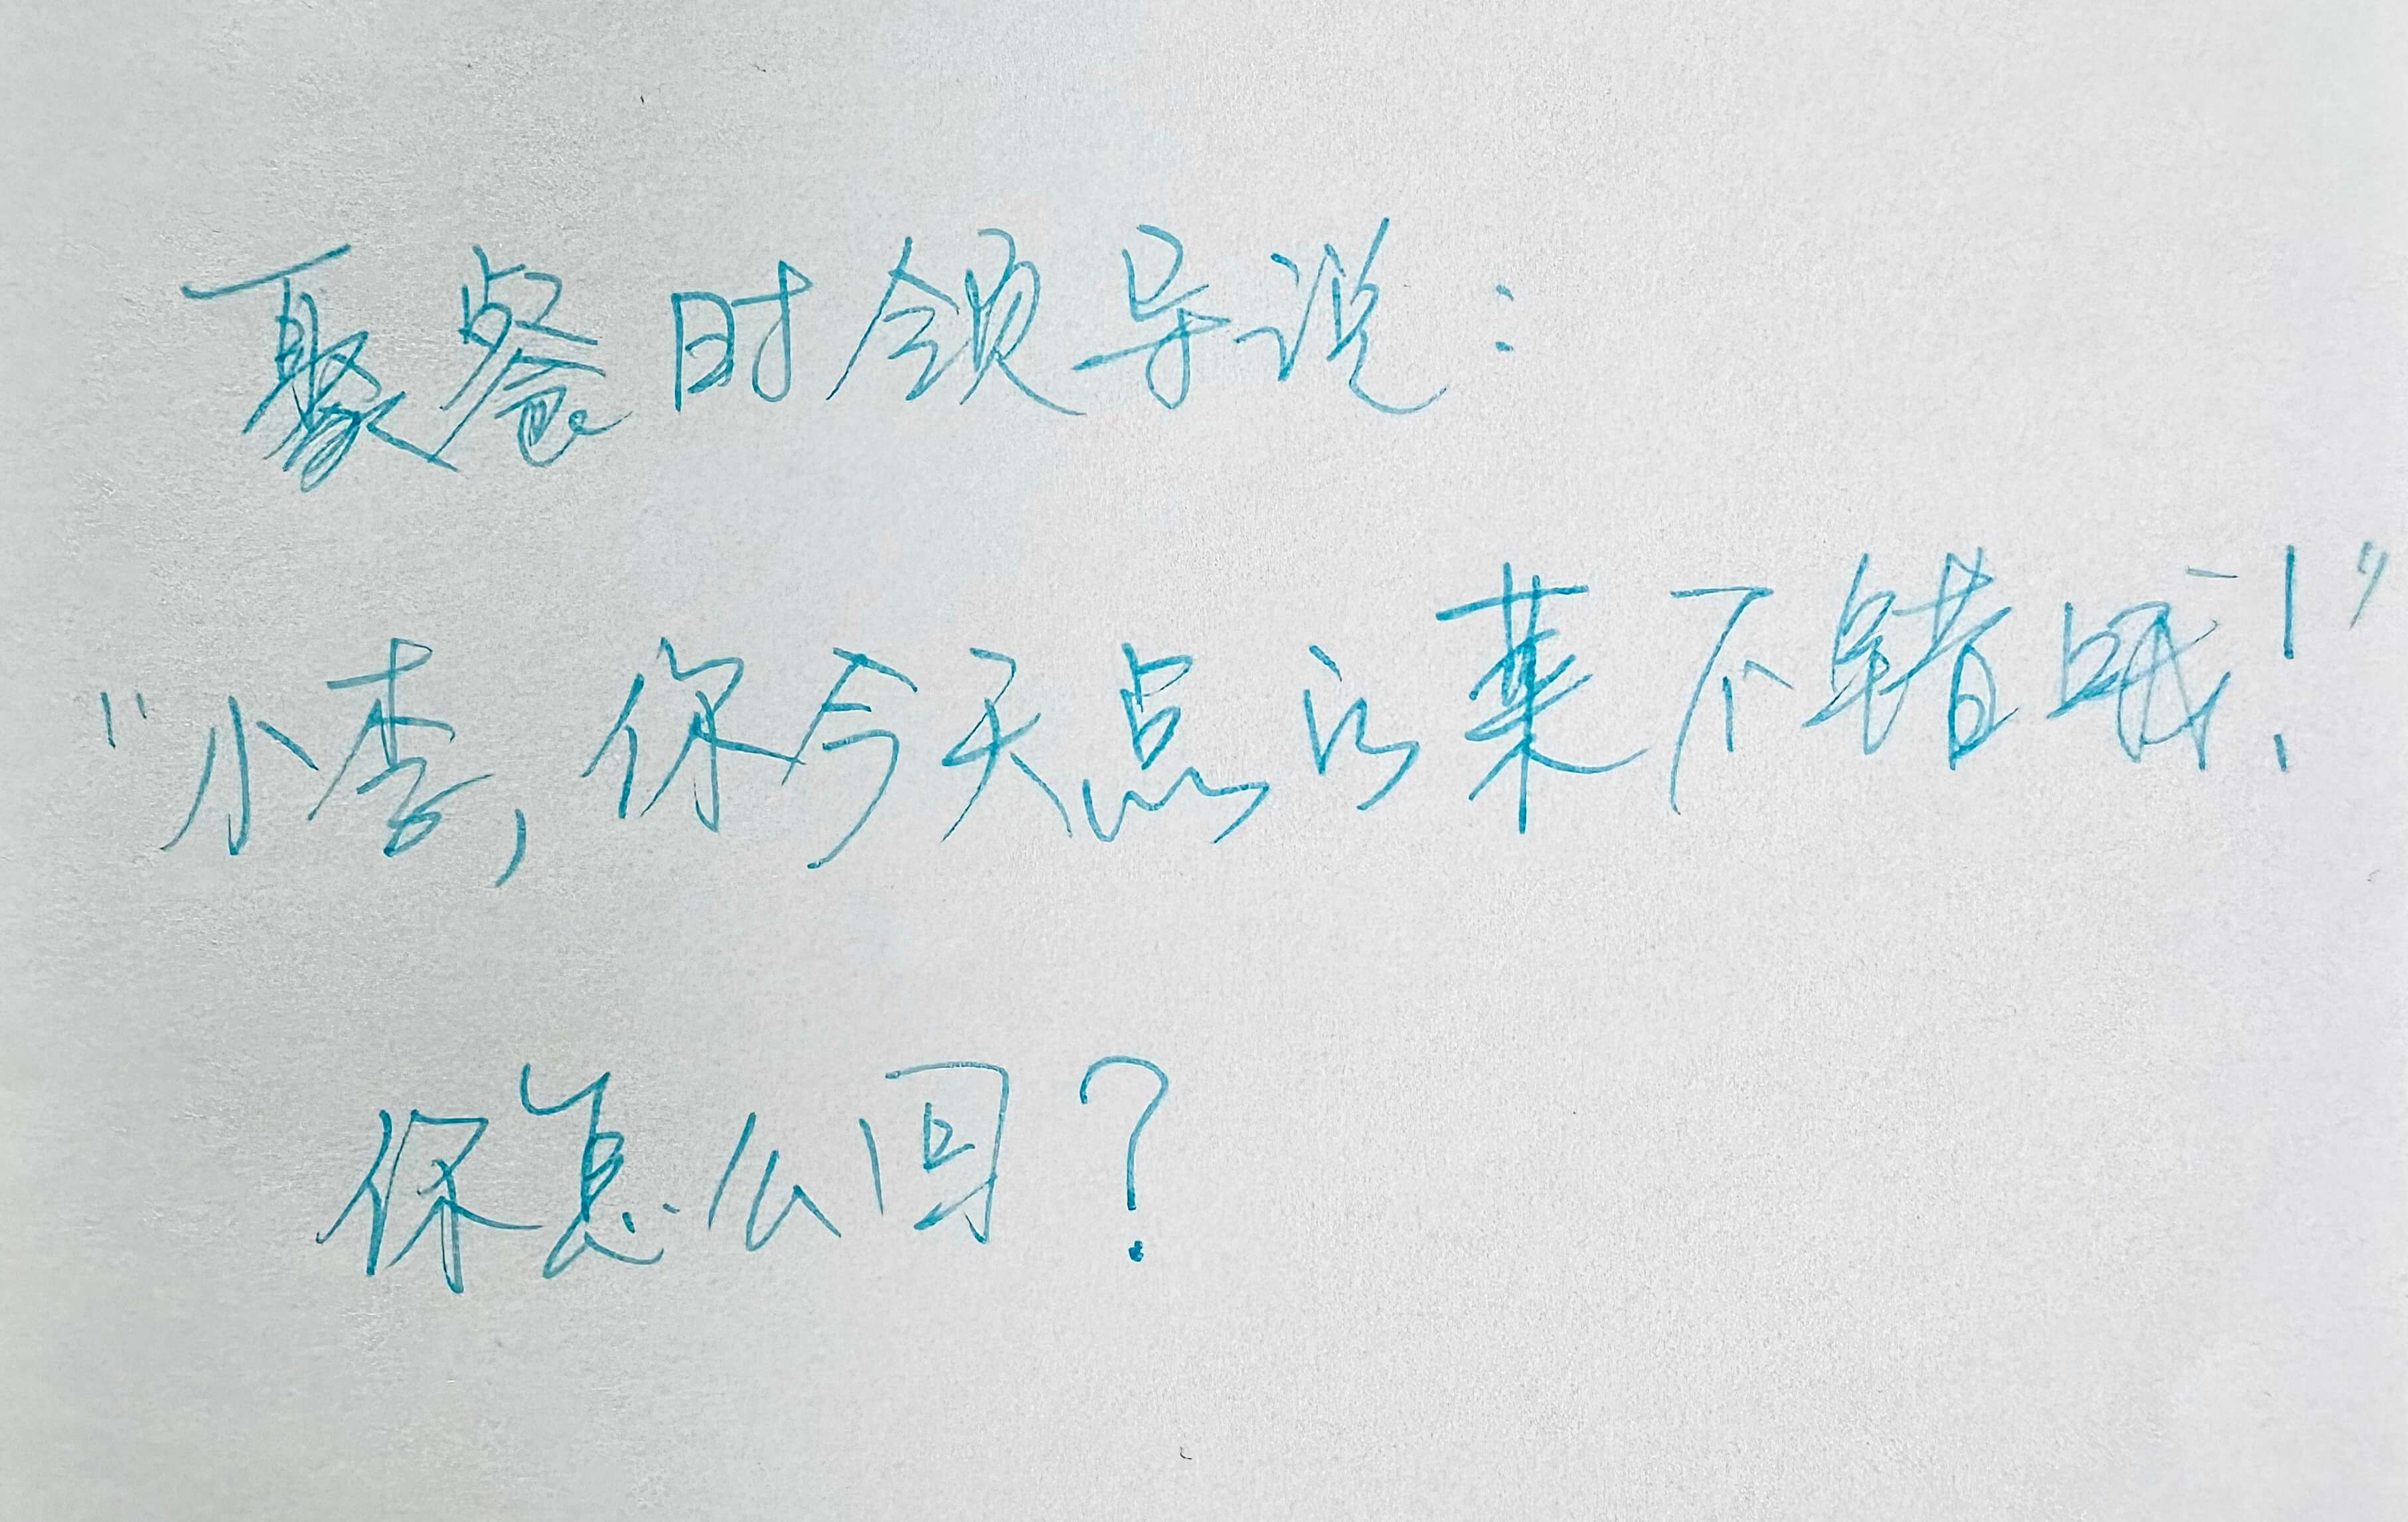 聚餐时领导说：
“小李，你今天点的菜不错哦！”
你怎么回？